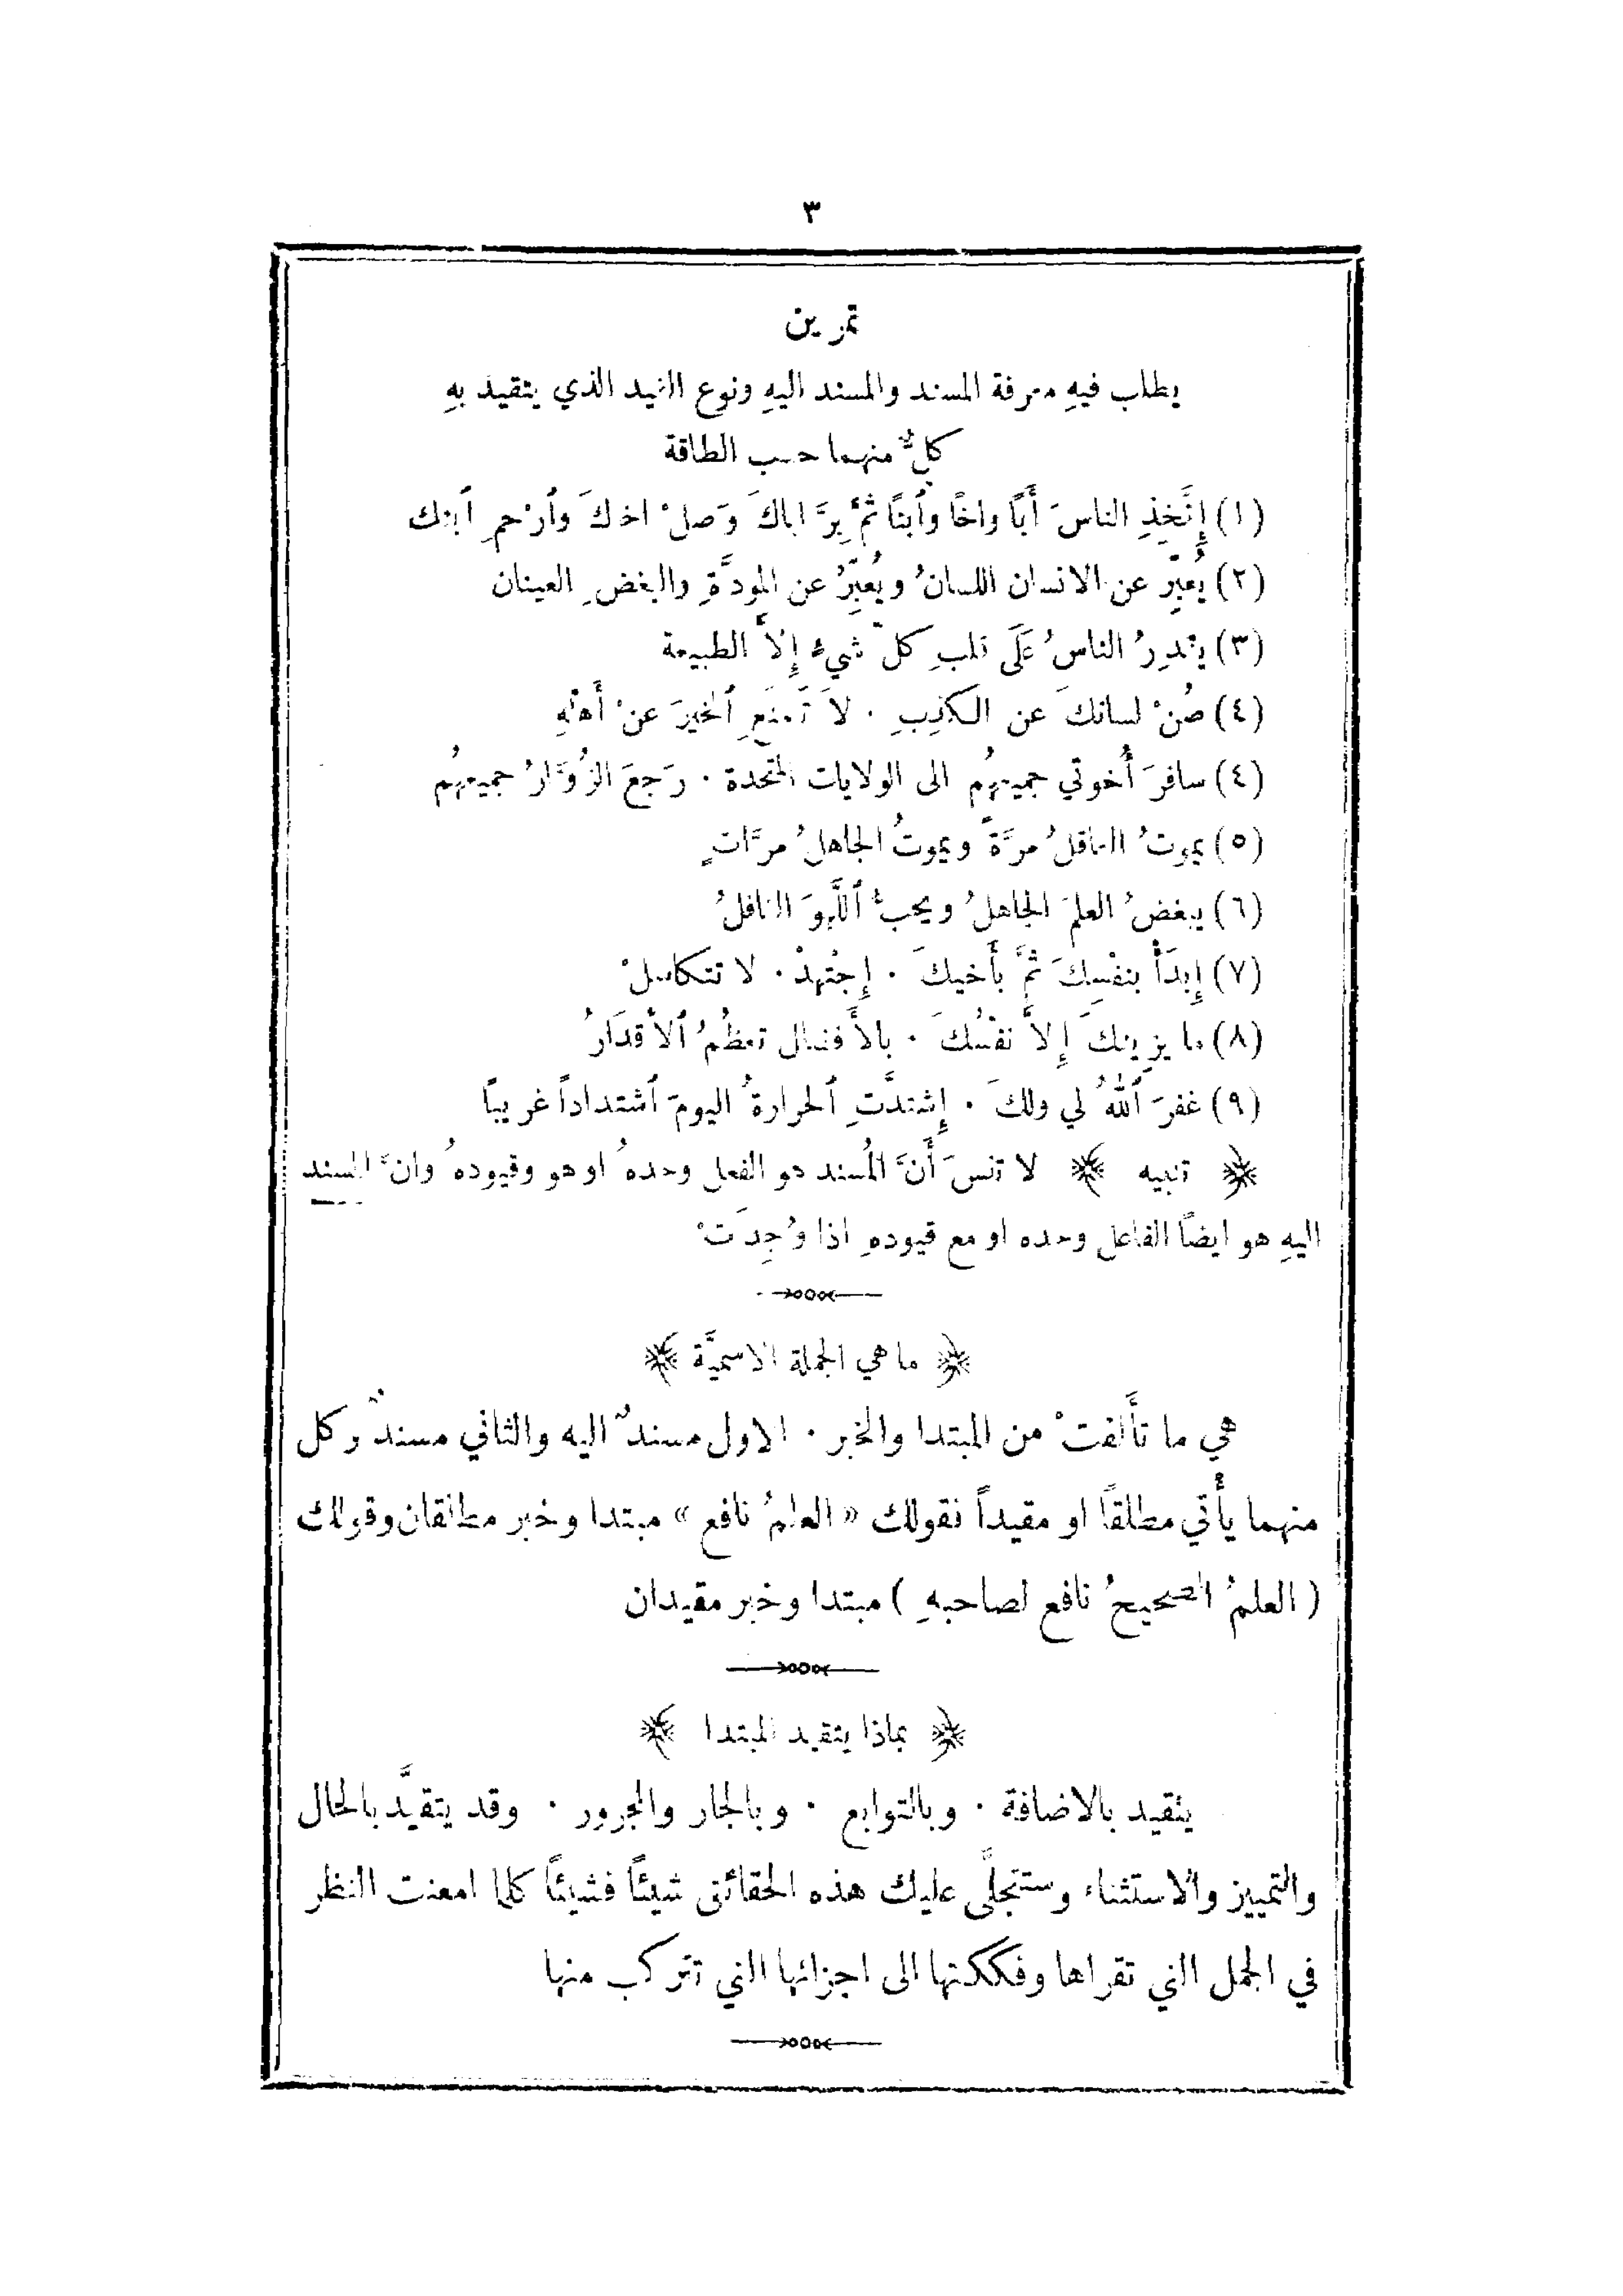 ٣
تمرين
يطلب فيهِ معرفة المسند والمسند اليهِ ونوع القيد الذي يتقيد بهِ
كلٌّ منهما حسب الطاقة
(١) إِتَّخِذِ الناسَ أَبًا واخًا وٱبنًا ثمَّ بِرَّ اباكَ وَصلْ اخاكَ وٱرْحمِ ٱبنك
(٢) يُعبِّر عن الانسان اللسانُ ويُعبِّرُ عن المودَّةِ والبغضِ العينان
(٣) يقدِرُ الناسُ عَلَى قلبِ كلّ شيءٍ إِلاَّ الطبيعة
(٤) صُنْ لسانكَ عن الكذِبِ ٠ لاَ تَمنَعِ ٱلخيرَ عنْ أَهلهِ
(٤) سافرَ أُخوتي جميعهُم الى الولايات المتّحدة ٠ رَجعَ الزُوَّارُ جميعهُم
(٥) يموتُ العاقلُ مرَّةً ويموتُ الجاهلُ مرَّاتٍ
(٦) يبغضُ العلمَ الجاهلُ ويحبُّ ٱللَّهوَ الغافلُ
(٧) إِبدَأْ بنفْسِكَ ثمَّ بأَخيكَ ٠ إِجْتهِدْ ٠ لا تتكاسلْ
(٨) ما يزينكَ إِلاَّ نفْسُكَ ٠ بالأَفضال تعظُمُ ٱلأَقدَارُ
(٩) غفرَ ٱللهُ لي ولكَ ٠ إِشتدَّتِ ٱلحرارةُ اليومَ ٱشتداداً غريبًا
﴿ تنبيه ﴾ لا تنسَ أَنَّ المُسند هو الفعل وحدهُ او هو وقيودهُ وانَّ المسند
اليهِ هو ايضًا الفاعل وحده او مع قيودهِ اذا وُجِدَتْ
﴿ ما هي الجملة الاسميَّة ﴾
هي ما تأَلفتْ من المبتدا والخبر ٠ الاول مسندٌ اليه والثاني مسندٌ وكل
منهما يأْتي مطلقًا او مقيداً فقولك « العلمُ نافع » مبتدا وخبر مطلقان وقولك
( العلمُ الصحيحُ نافع لصاحبهِ ) مبتدا وخبر مقيدان
﴿ بماذا يتقيد المبتدا ﴾
يتقيد بالاضافة ٠ وبالتوابع ٠ وبالجار والمجرور ٠ وقد يتقيَّد بالحال
والتمييز والاستثناء وستنجلَّى عليك هذه الحقائق شيئًا فشيئًا كلما امعنت النظر
في الجمل التي تقراها وفككتها الى اجزائها التي تتركب منها